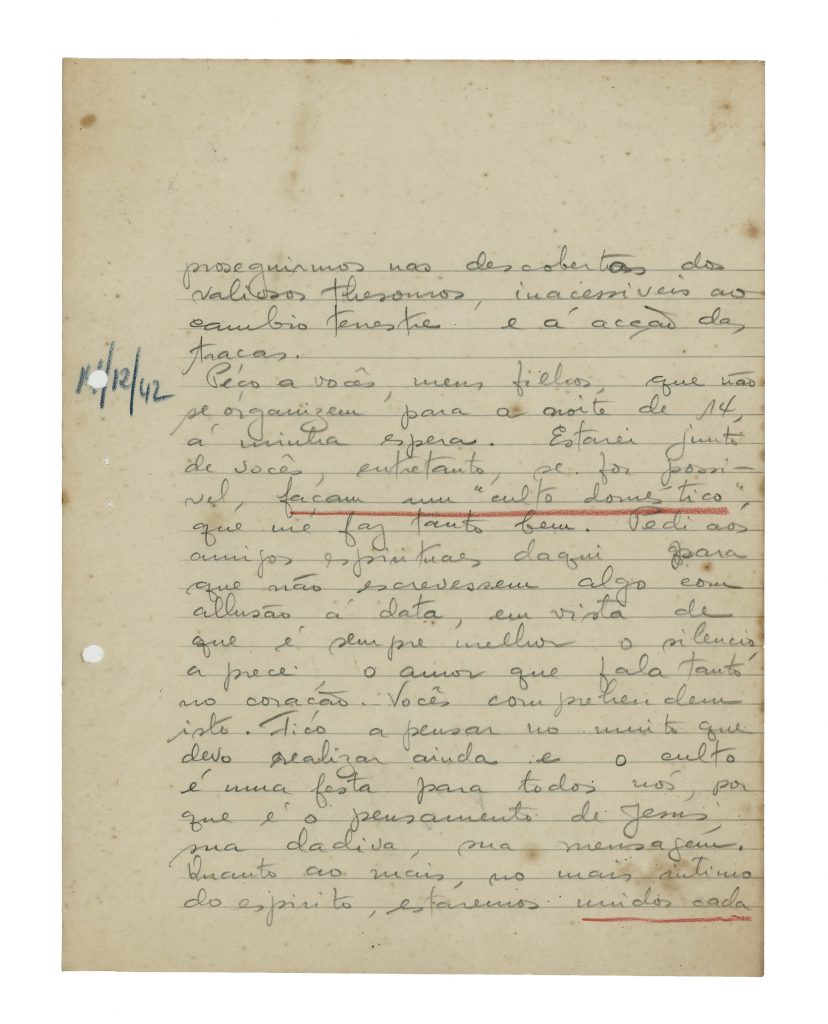 proseguirmos nas descobertas dos
valiosos thesouros, inacessiveis ao
cambio terrestre e á acção das
traças.
14/12/42
Péço a vocês, meus filhos, que não
se organizem para a noite de 14,
á minha espera. Estarei junto
de vocês, entretanto, se for possi-
vel, façam um "culto domestico",
que me faz tanto bem. Pedi aos
amigos espirituaes daqui para
que não escrevessem algo com
allusão á data, em vista de
que é sempre melhor o silencio,
a prece, o amor que fala tanto
no coração. Vocês comprehendem
isto. Fico a pensar no muito que
devo realizar ainda e o culto
é uma festa para todos nós, por
que é o pensamento de Jesus,
sua dadiva, sua mensagem.
Quanto ao mais, no mais intimo
do espirito, estaremos unidos cada